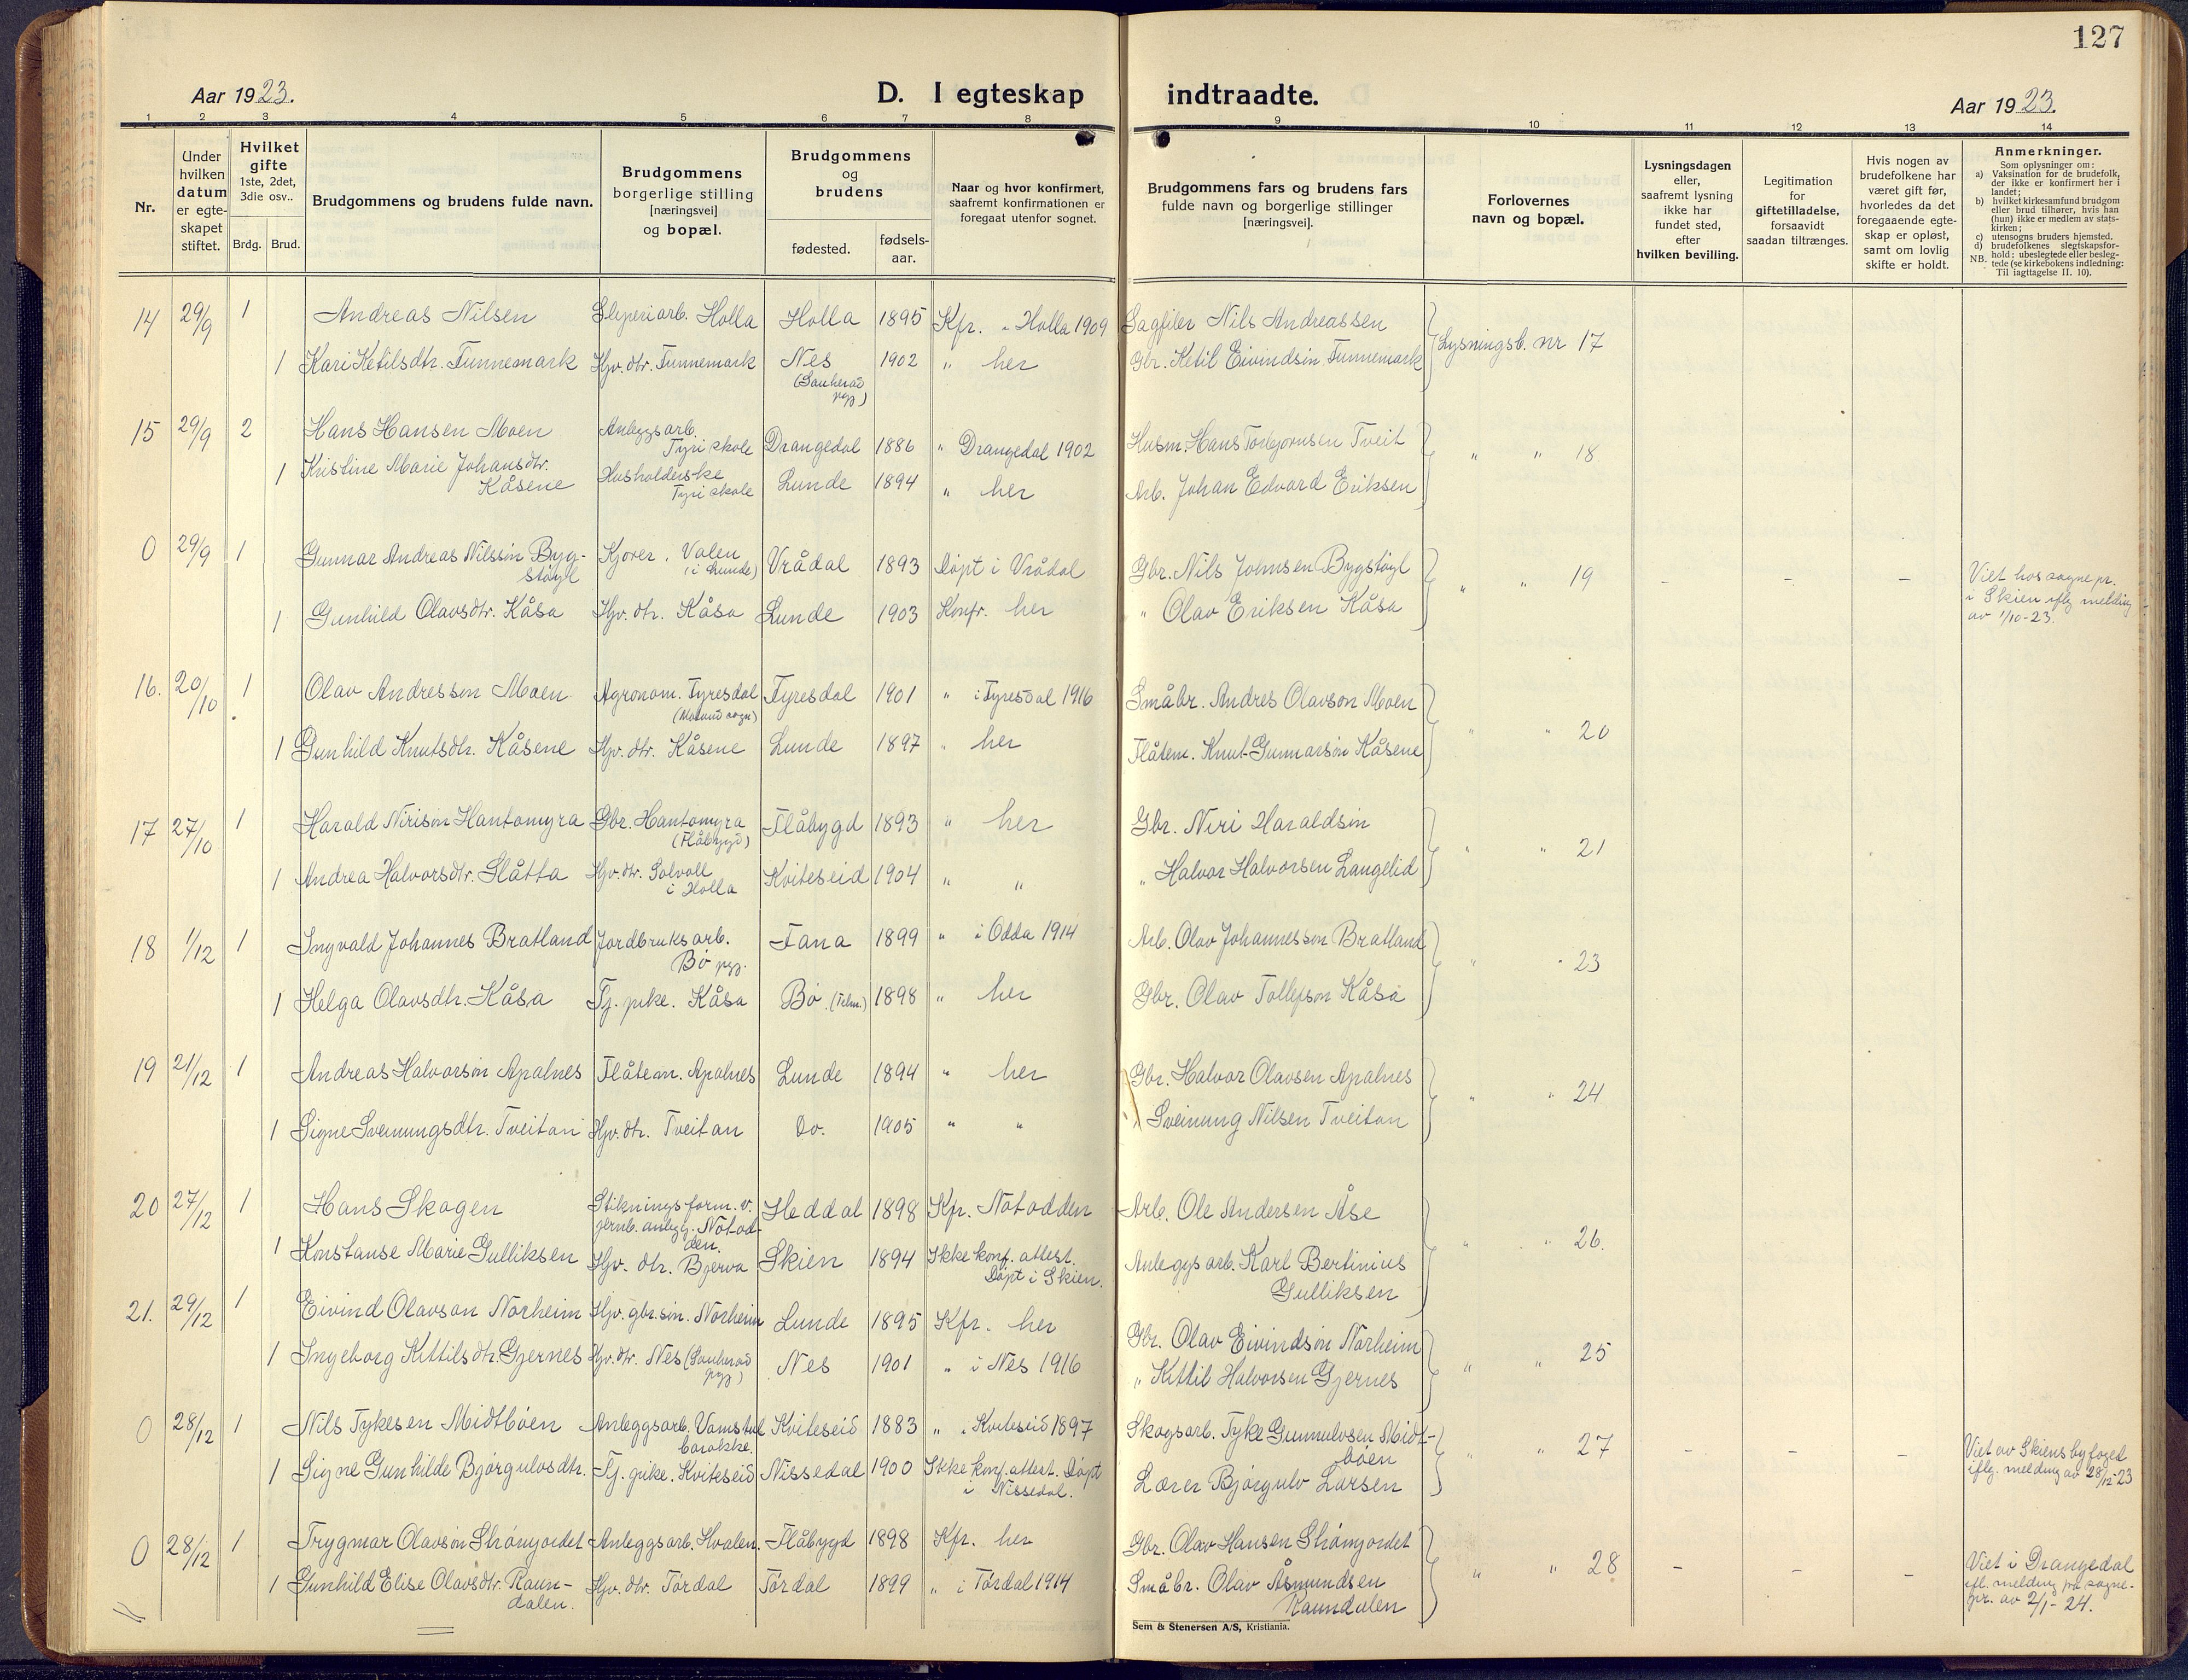 127
Aar 1923.
D. I egteskap indtraadte.
Aar 1923.
1 2 3 4 5 6 7 8 9 10 11 12 13 14
Nr.
Under hvilken datum er egte-skapet stiftet.
Hvilket gifte 1ste, 2det, 3die osv..
Brdg. Brud.
Brudgommens og brudens fulde navn.
Brudgommens borgerlige stilling [næringsvei] og bopæl.
Brudgommens og brudens
fødested. fødsels-aar.
Naar og hvor konfirmert, saafremt konfirmationen er foregaat utenfor sognet.
Brudgommens fars og brudens fars fulde navn og borgerlige stillinger [næringsvei].
Forlovernes navn og bopæl.
Lysningsdagen eller, saafremt lysning ikke har fundet sted, efter hvilken bevilling.
Legitimation for giftetilladelse, forsaavidt saadan tiltrænges.
Hvis nogen av brudefolkene har været gift før, hvorledes da det foregaaende egte-skap er opløst, samt om lovlig skifte er holdt.
Anmerkninger.
Som oplysninger om:
a) Vaksination for de brudefolk, der ikke er konfirmert her i landet;
b) hvilket kirkesamfund brudgom eller brud tilhører, hvis han (hun) ikke er medlem av stats-kirken;
c) utensogns bruders hjemsted.
d) brudefolkenes slegtskapsfor-hold: ubeslegtede eller besleg-tede (se kirkebokens indledning:
NB. Til iagttagelse II. 10).
14 29/9 1 Andreas Nilsen Sliperiarb. Holla Holla 1895 Kfr. i Holla 1909 Sagfiler Nils Andreassen Lysningsb. nr 17
1 Kari Ketilsdtr. Funnemark Hjv. dtr. Funnemark Nes (Sauherad pgj) 1902 " her Gbr. Ketil Eivindsön Funnemark
15 29/9 2 Hans Hansen Moen Anleggsarb. Tyri skole Drangedal 1886 " Drangedal 1902 Husm. Hans Torbjørnsen Tveit " " 18
1 Kristine Marie Johansdtr. Kåsene Husholderske Tyri skole Lunde 1894 " her Arb. Johan Edvard Eriksen
0 29/9 1 Gunnar Andreas Nilssön Byg-støyl Kjører, Valen (i Lunde) Vrådal 1893 Døpt i Vrådal Gbr. Nils Johnsen Bygstøyl " " 19 - - - Viet hos sognepr. i Skien iflg melding av 1/10-23.
1 Gunhild Olavsdtr. Kåsa Hjv. dtr. Kåsa Lunde 1903 Konfr. her " Olav Eriksen Kåsa
16. 20/10 1 Olav Andresson Moen Agronom. Fyresdal (Moland sogn) Fyresdal 1901 " i Fyresdal 1916 Småbr. Andres Olavson Moen " " 20
1 Gunhild Knutsdtr. Kåsene Hjv. dtr. Kåsene Lunde 1897 " her Flåtem. Knut Gunnarsön Kåsene
17 27/10 1 Harald Nirisön Hantomyra Gbr. Hantomyra (Flåbygd) Flåbygd 1893 " her Gbr. Niri Haraldsön " " 21
1 Andrea Halvorsdtr. Slåtta Hjv. dtr. Solvoll i Holla Kviteseid 1904 " " " Halvor Halvorsen Langelid
18 1/12 1 Ingvald Johannes Bratland Jordbruksarb. Bø pgj. Fana 1899 " i Odda 1914 Arb. Olav Johannesson Bratland " " 23
1 Helga Olavsdtr. Kåsa Tj. pike. Kåsa Bø (Telm.) 1898 " her Gbr. Olav Tollefson Kåsa
19 21/12 1 Andreas Halvorsön Apalnes Flåtem. Apalnes Lunde 1894 " her Gbr. Halvor Olavsen Apalnes " " 24
1 Signe Sveinungsdtr. Tveitan Hjv. dtr. Tveitan Do. 1905 " " Sveinung Nilsen Tveitan
20 27/12 1 Hans Skogen Stikningsform. v. jernb. anlegg. Notod-den. Heddal 1898 Kfr. Notodden Arb. Ole Andersen Åse " " 26.
1 Konstanse Marie Gulliksen Hjv. dtr. Bjerva Skien 1894 Ikke konf. attest. Døpt i Skien. Anleggsarb. Karl Bertinius Gulliksen
21. 29/12 1 Eivind Olavson Norheim Hjv. gbr. sön. Norheim Lunde 1895 Kfr. her Gbr. Olav Eivindsön Norheim " " 25
1 Ingeborg Kittilsdtr. Gjernes Hjv. dtr. Nes (Sauherad pgj) Nes 1901 " i Nes 1916 " Kittil Halvorsen Gjernes
0 28/12 1 Nils Tykesen Midtbøen Anleggsarb. barakke. Kviteseid 1883 " i Kviteseid 1897 Skogsarb. Tyke Gunnulvsen Midt-bøen " " 27 - - - Viet av Skiens byfoged iflg. melding av 28/12-23
1 Signe Gunhilde Bjørgulvsdtr. Tj. pike. Kviteseid Nissedal 1900 Ikke konf. attest. Døpt i Nissedal. Lærer Bjørgulv Larsen
0 28/12 1 Trygmar Olavsön Strømjordet Anleggsarb. Hvalen. Flåbygd 1898 Kfr. her Gbr. Olav Hansen Strømjordet " " 28 - - - Viet i Drangedal ifl. melding fra sogne-pr. av 2/1-24.
1 Gunhild Elise Olavsdtr. Raun-dalen. Hjv. dtr. Tørdal Tørdal 1899 " i Tørdal 1914 Småbr. Olav Åsmundsen Raundalen
Sem & Stenersen A/S, Kristiania.